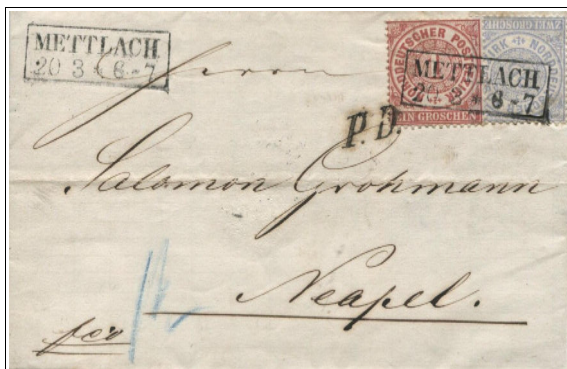 METTLACH
20 3 6-7
NORDDEUTSCHER POSTBEZIRK
EIN GROSCHEN
ZWEI GROSCHEN
METTLACH
20 3 6-7
Herrn
P.D.
Salomon Grohmann
Neapel.
fco